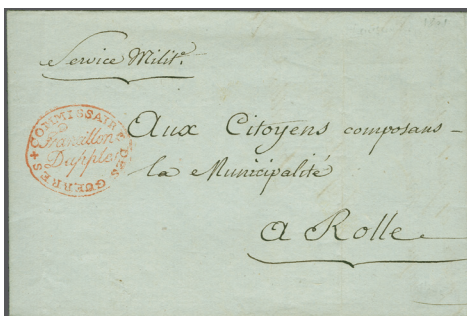 Service Milit.
COMMISSAIRE DES GUERRES
Grancillon
Dapples
Aux Citoyens composans -
la Municipalité
a Rolle